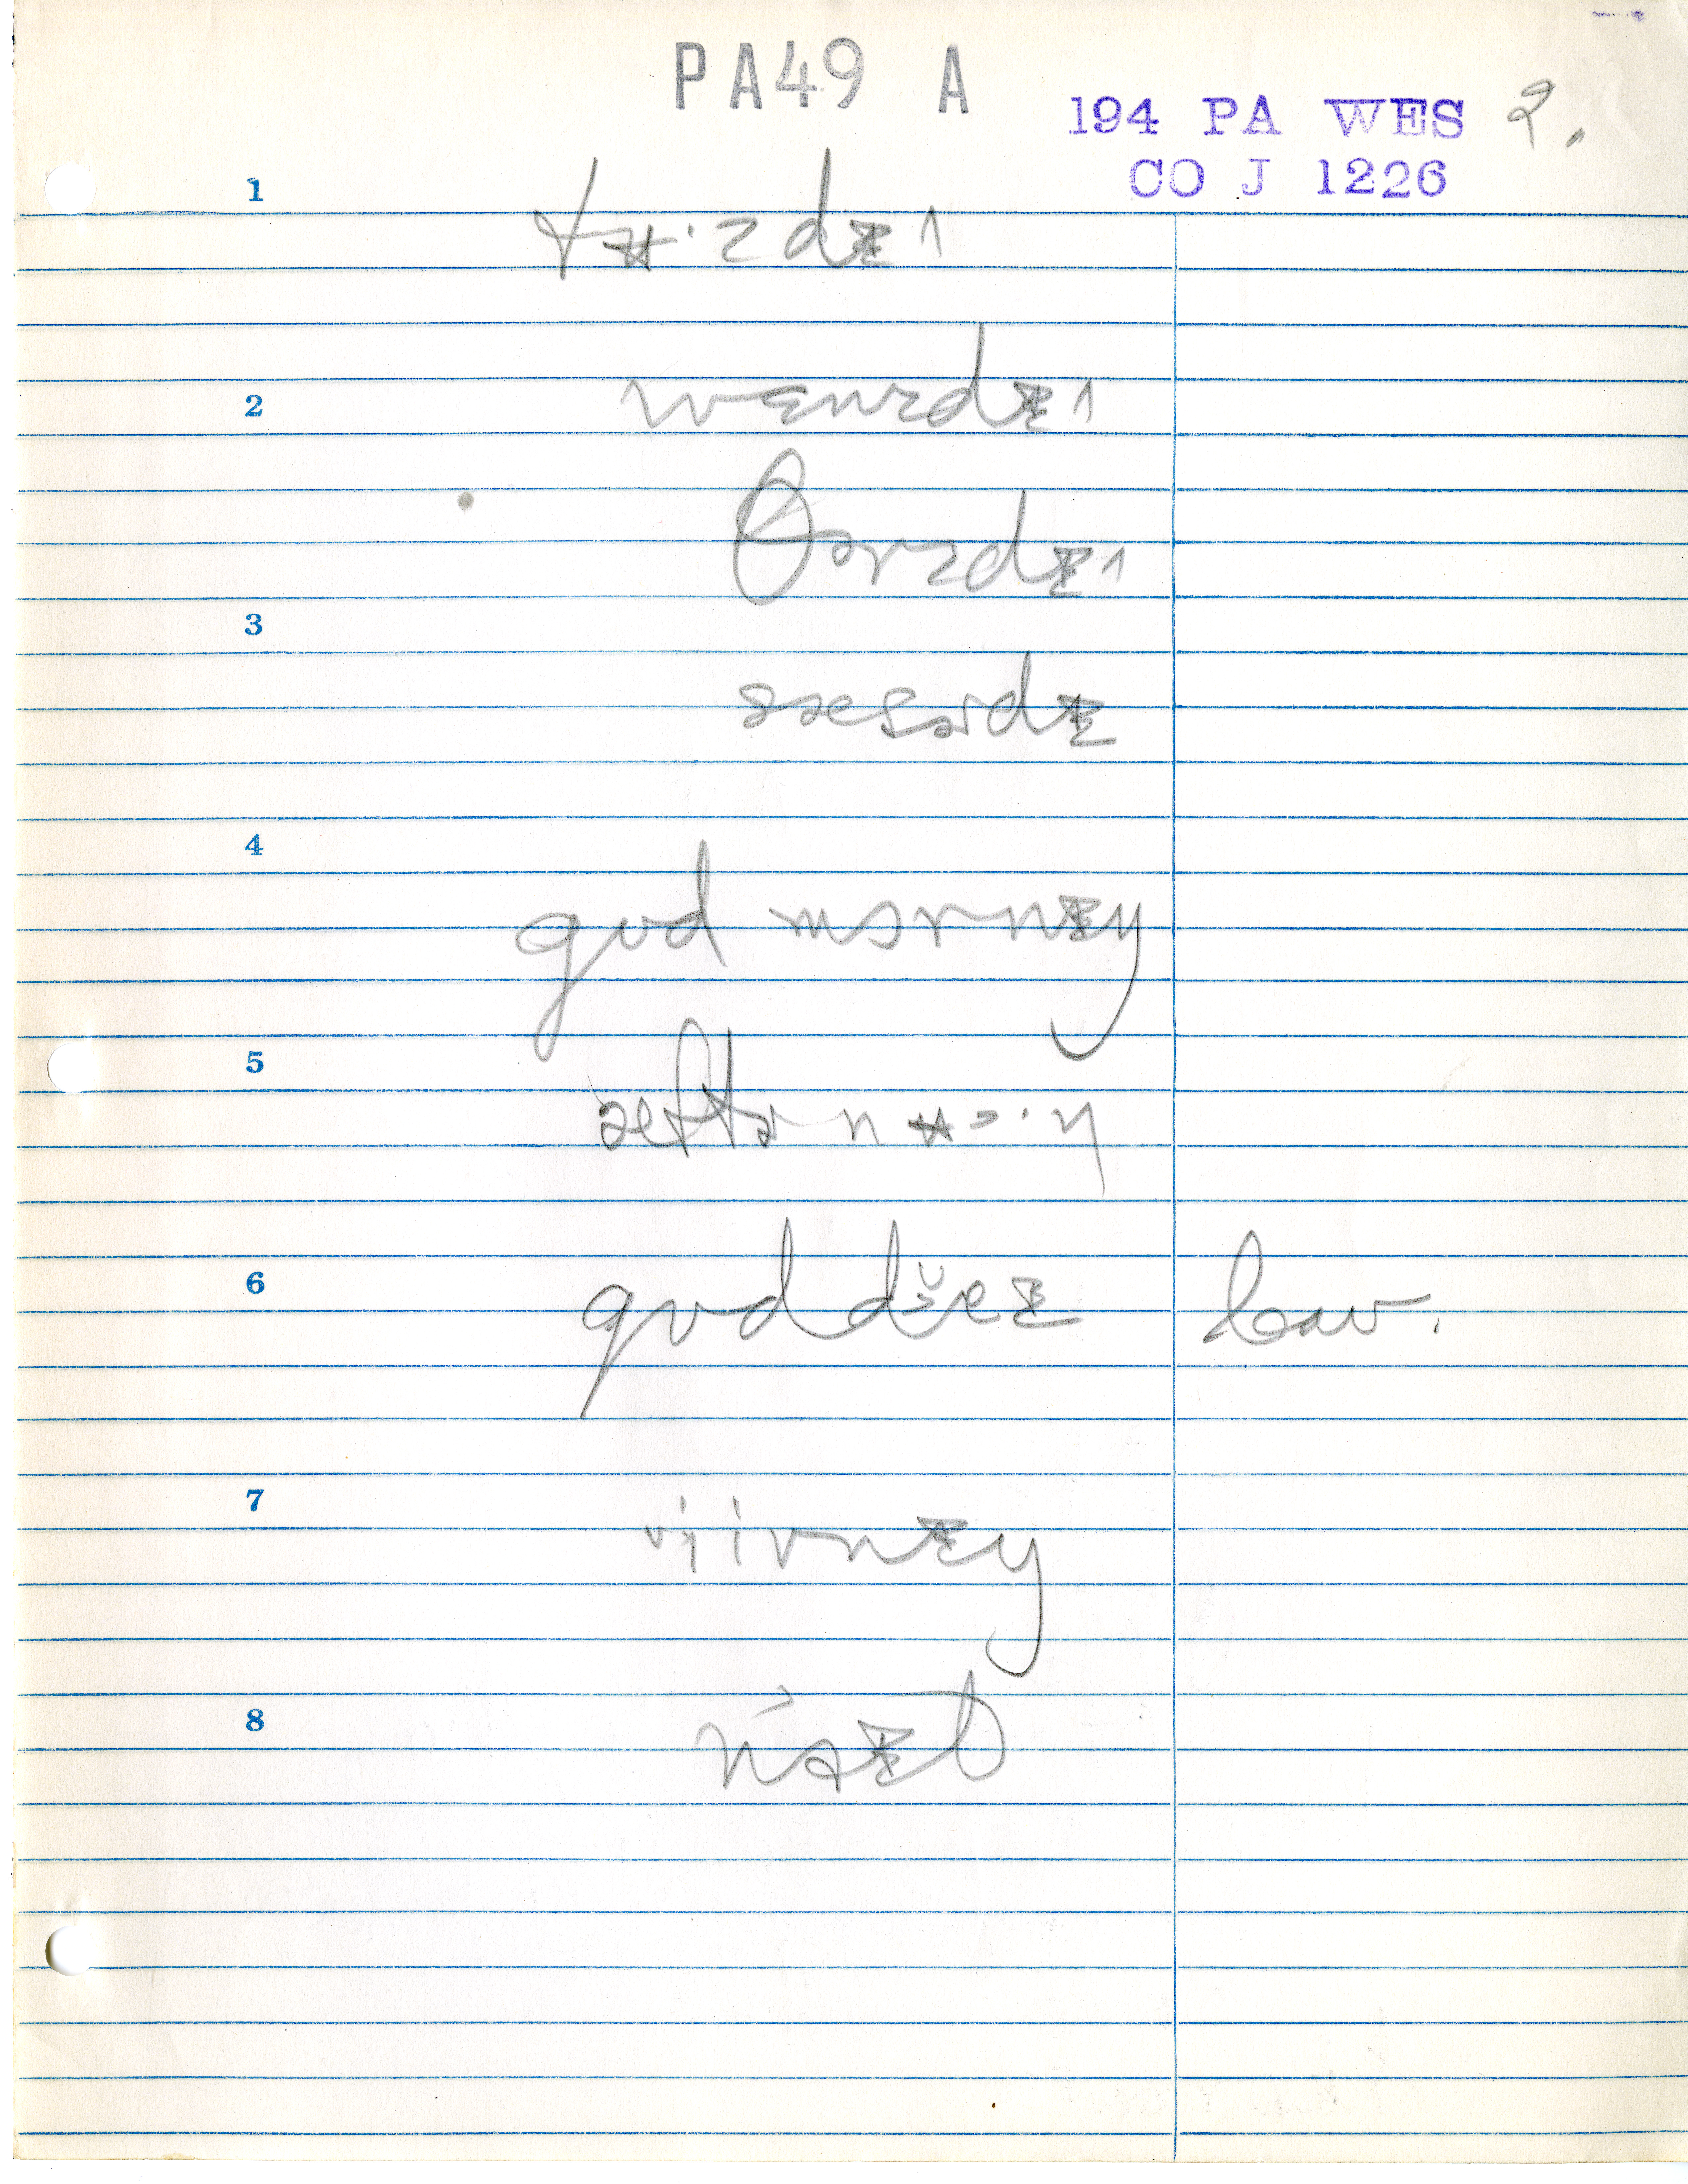 PA49 A
194 PA WES 2.
CO J 1226
1
tʉ·zdɪ^
2
wenzdɪ^
θɚzdɪ^
3
sæsɚdɪ
4
gʊd mɔrnɪŋ
5
æftɚnʉə·n
6
gʊd džeɪ law.
7
ijivnɪŋ
8